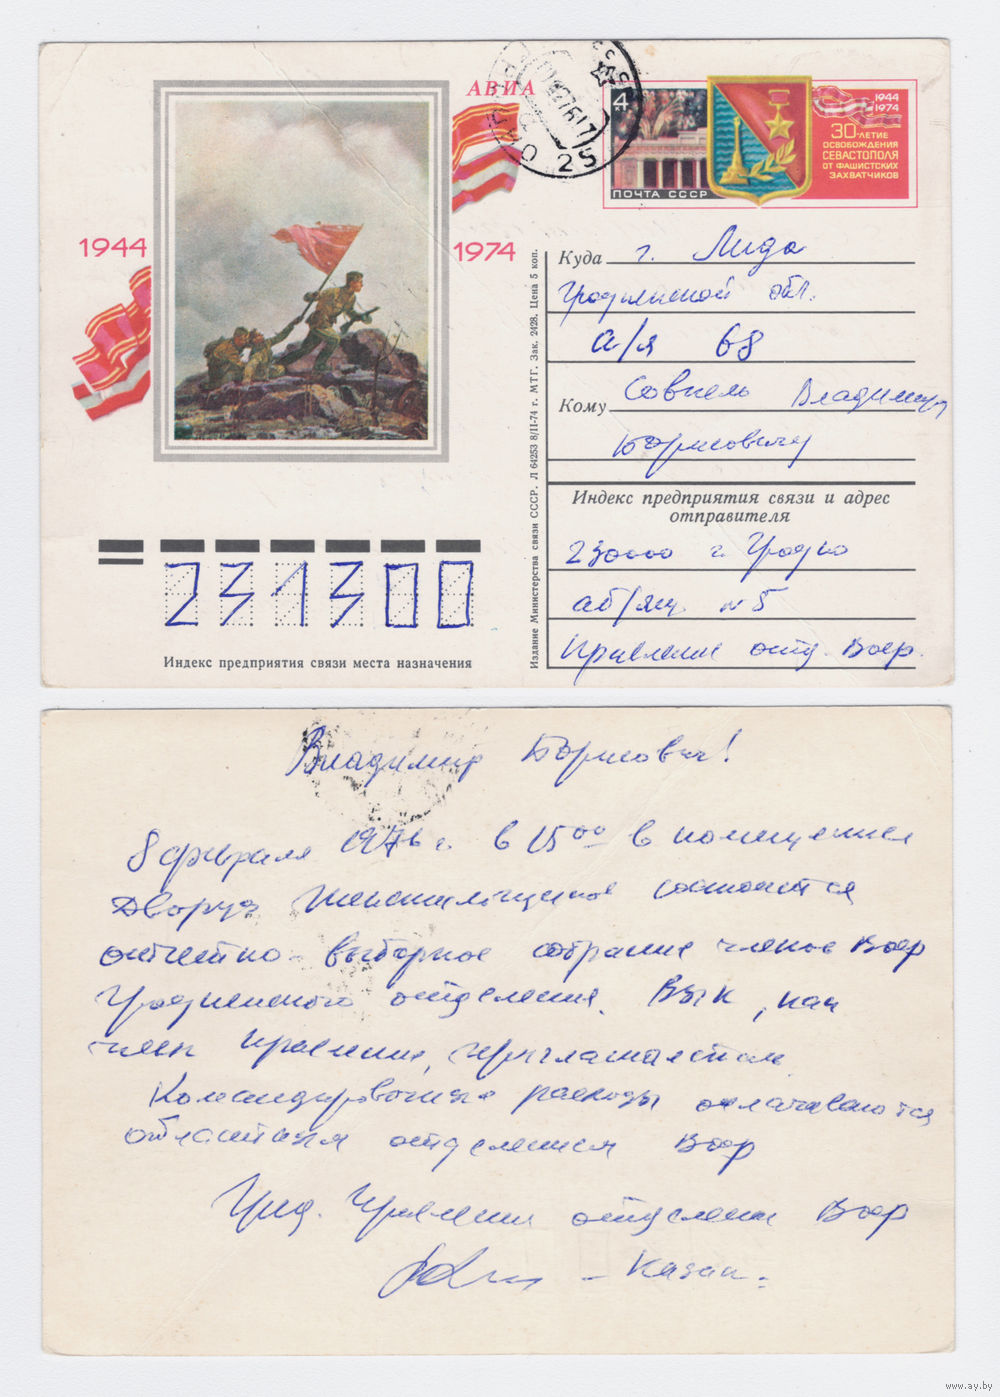 АВИА
25
4
1944
1974
30-ЛЕТИЕ
ОСВОБОЖДЕНИЯ
СЕВАСТОПОЛЯ
ОТ ФАШИСТСКИХ
ЗАХВАТЧИКОВ
ПОЧТА СССР
1944
1974
Куда г. Лида
Гродненской обл.
а/я 68
Кому Владимиру
Борисовичу
Индекс предприятия связи и адрес
отправителя
230000 г. Гродно
аб/ящ. №5
Правление отд. Воер.
Издание Министерства связи СССР. Л 64253 8/II-74 г. МТГ. Зак. 2428. Цена 5 коп.
231300
Индекс предприятия связи места назначения
Владимир Борисович!
8 февраля 1976 г. в 15 00 в помещении
Дворца состоится
отчетно-выборное собрание членов Воер
Гродненского отделения. Вы, как
член правления, приглашаетесь.
Командировочные расходы оплачиваются
областным отделением Воер
Пред. Правления отделения Воер
- Казак.
www.ay.by